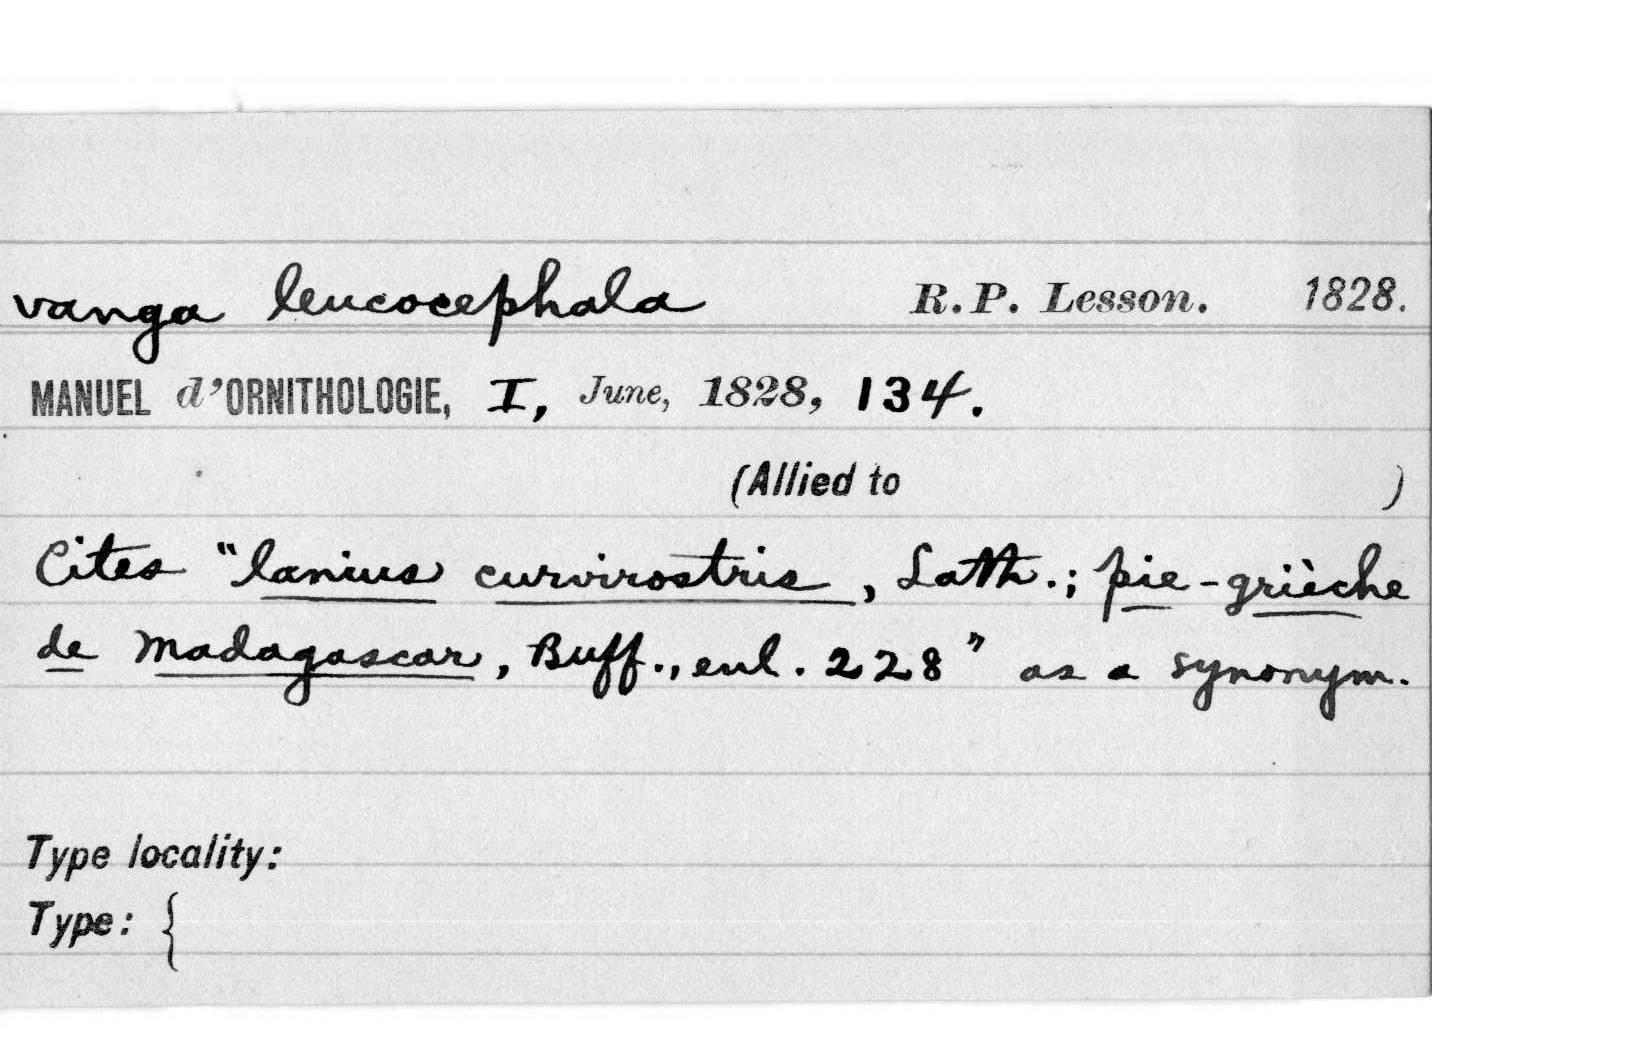 vanga leucocephala R.P. Lesson. 1828.
MANUEL d'ORNITHOLOGIE, I, June, 1828, 134.
(Allied to )
Cites "lanius curvirostris, Lath.; pie-grièche
de Madagascar, Buff., enl. 228" as a synonym.
Type locality:
Type: {